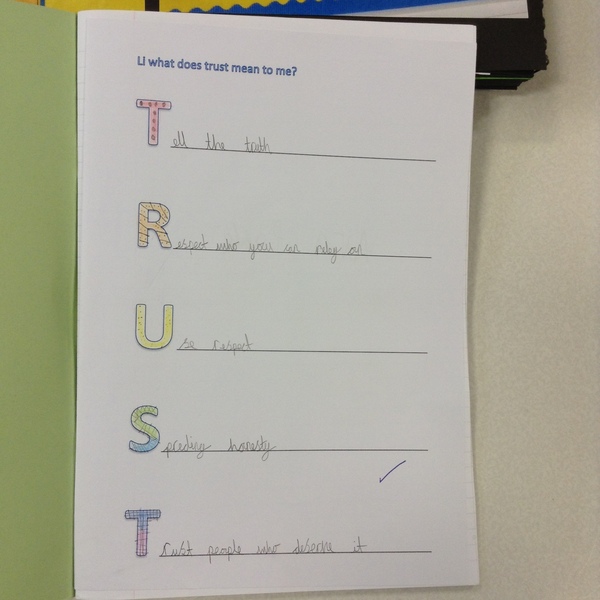 LI what does trust mean to me?
Tell the truth
Respect who you can relay on
Use respect
Spreding honesty
Trust people who deserve it